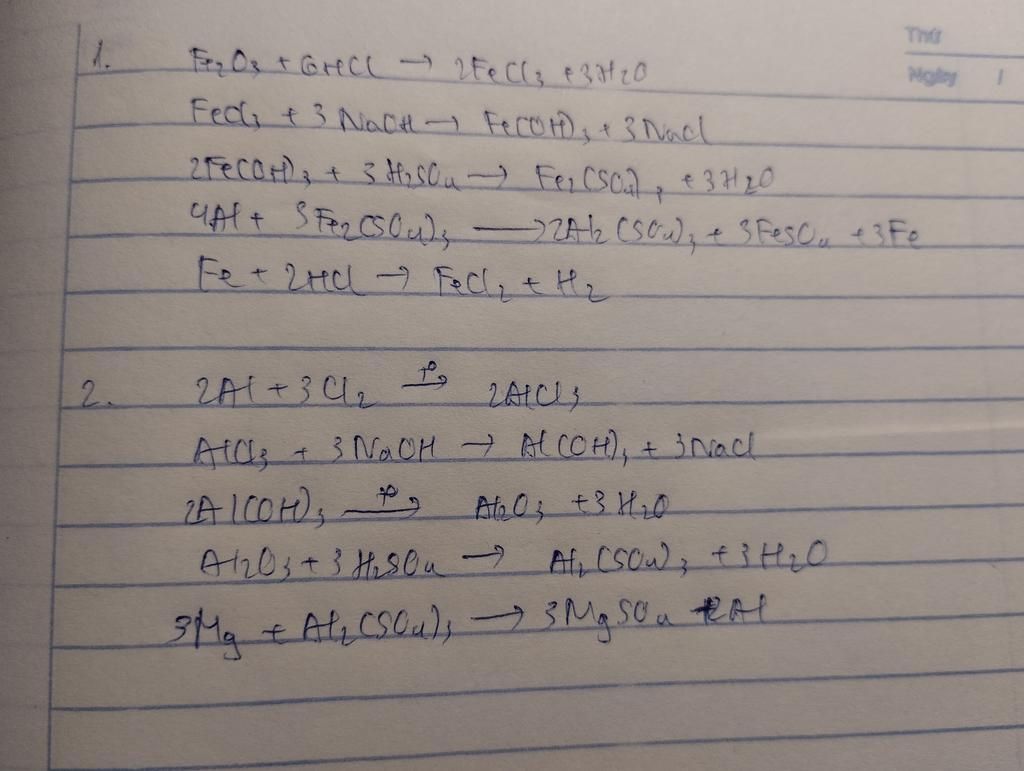 Thứ
Ngày
1. Fe2O3 + 6HCl → 2FeCl3 + 3H2O
FeCl3 + 3NaOH → Fe(OH)3 + 3NaCl
2Fe(OH)3 + 3H2SO4 → Fe2(SO4)3 + 3H2O
4Al + 3Fe2(SO4)3 → 2Al2(SO4)3 + 3FeSO4 + 3Fe
Fe + 2HCl → FeCl2 + H2
2. 2Al + 3Cl2 t°→ 2AlCl3
AlCl3 + 3NaOH → Al(OH)3 + 3NaCl
2Al(OH)3 t°→ Al2O3 + 3H2O
Al2O3 + 3H2SO4 → Al2(SO4)3 + 3H2O
3Mg + Al2(SO4)3 → 3MgSO4 + 2Al